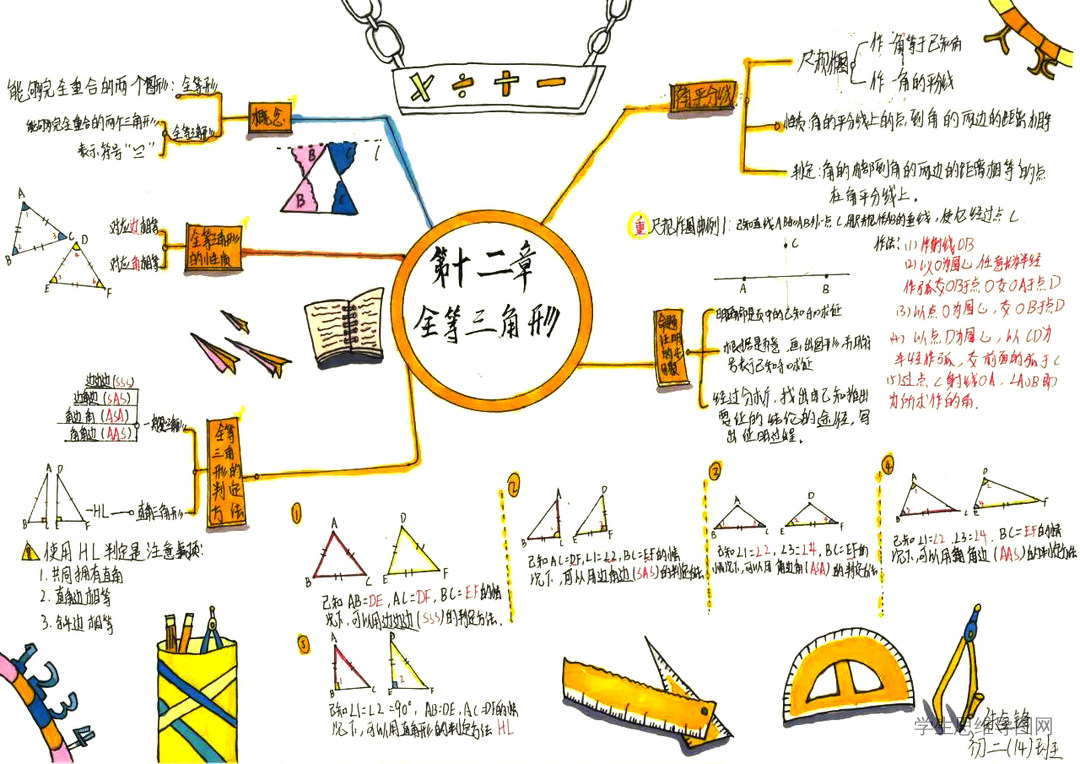 × ÷ + −
第十二章
全等三角形
概念
能够完全重合的两个图形：全等形
能够完全重合的两个三角形
全等三角形
表示符号"≌"
B C l
B C
全等三角形
的性质
对应边相等
对应角相等
A
B C D
E F
全等
三角
形的
判定
方法
一般三角形
边边边(SSS)
边角边(SAS)
角边角(ASA)
角角边(AAS)
直角三角形
HL
A D
B C E F
使用HL判定是注意事项：
1. 共同拥有直角
2. 直角边相等
3. 斜边相等
角平分线
尺规作图
作一角等于已知角
作一角的平分线
性质：角的平分线上的点到角的两边的距离相等
判定：角的内部到角的两边的距离相等的点
在角平分线上。
重
尺规作图举例1：已知直线AB和AB外一点C，用尺规作AB的垂线，使它经过点C
C
A B
作法：(1) 作射线OB
(2) 以O为圆心，任意长为半径
作弧交OB于点O交OA于点D
(3) 以点O为圆心，交OB于点D
(4) 以点D为圆心，以CD为
半径作弧，交前面的弧于C
(5) 过点C射线OA，∠AOB即
为所求作的角。
命题
证明的步
骤
明确命题中的已知和求证
根据题意，画出图形，并用符
号表示已知和求证
经过分析，找出由已知推出
要证的结论的途径，写
出证明过程。
①
A D
B C E F
已知AB=DE，AC=DF，BC=EF的情
况下，可以用边边边(SSS)的判定方法．
②
A D
B C E F
已知AC=DF，∠1=∠2，BC=EF的情
况下，可以用边角边(SAS)的判定方法
③
A D
B C E F
已知∠1=∠2，∠3=∠4，BC=EF的
情况下，可以用角边角(ASA)的判定方法
④
A D
B C E F
已知∠1=∠2，∠3=∠4，BC=EF的情
况下，可以用角角边(AAS)的判定方法
⑤
A D
B C E F
已知∠1=∠2=90°，AB=DE，AC=DF的情
况下，可以用直角形的判定方法HL
1 2 3 4
学生思维导图网
初二(14)班